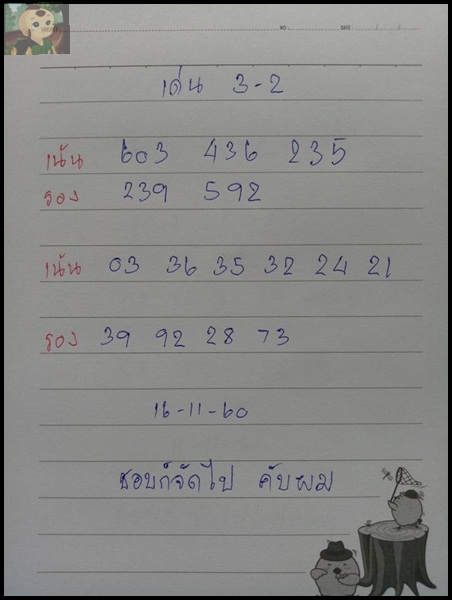 NO. DATE / /
เด่น 3-2
เน้น 603 436 235
รอง 239 592
เน้น 03 36 35 32 24 21
รอง 39 92 28 73
16-11-60
ชอบก็จัดไป คับผม